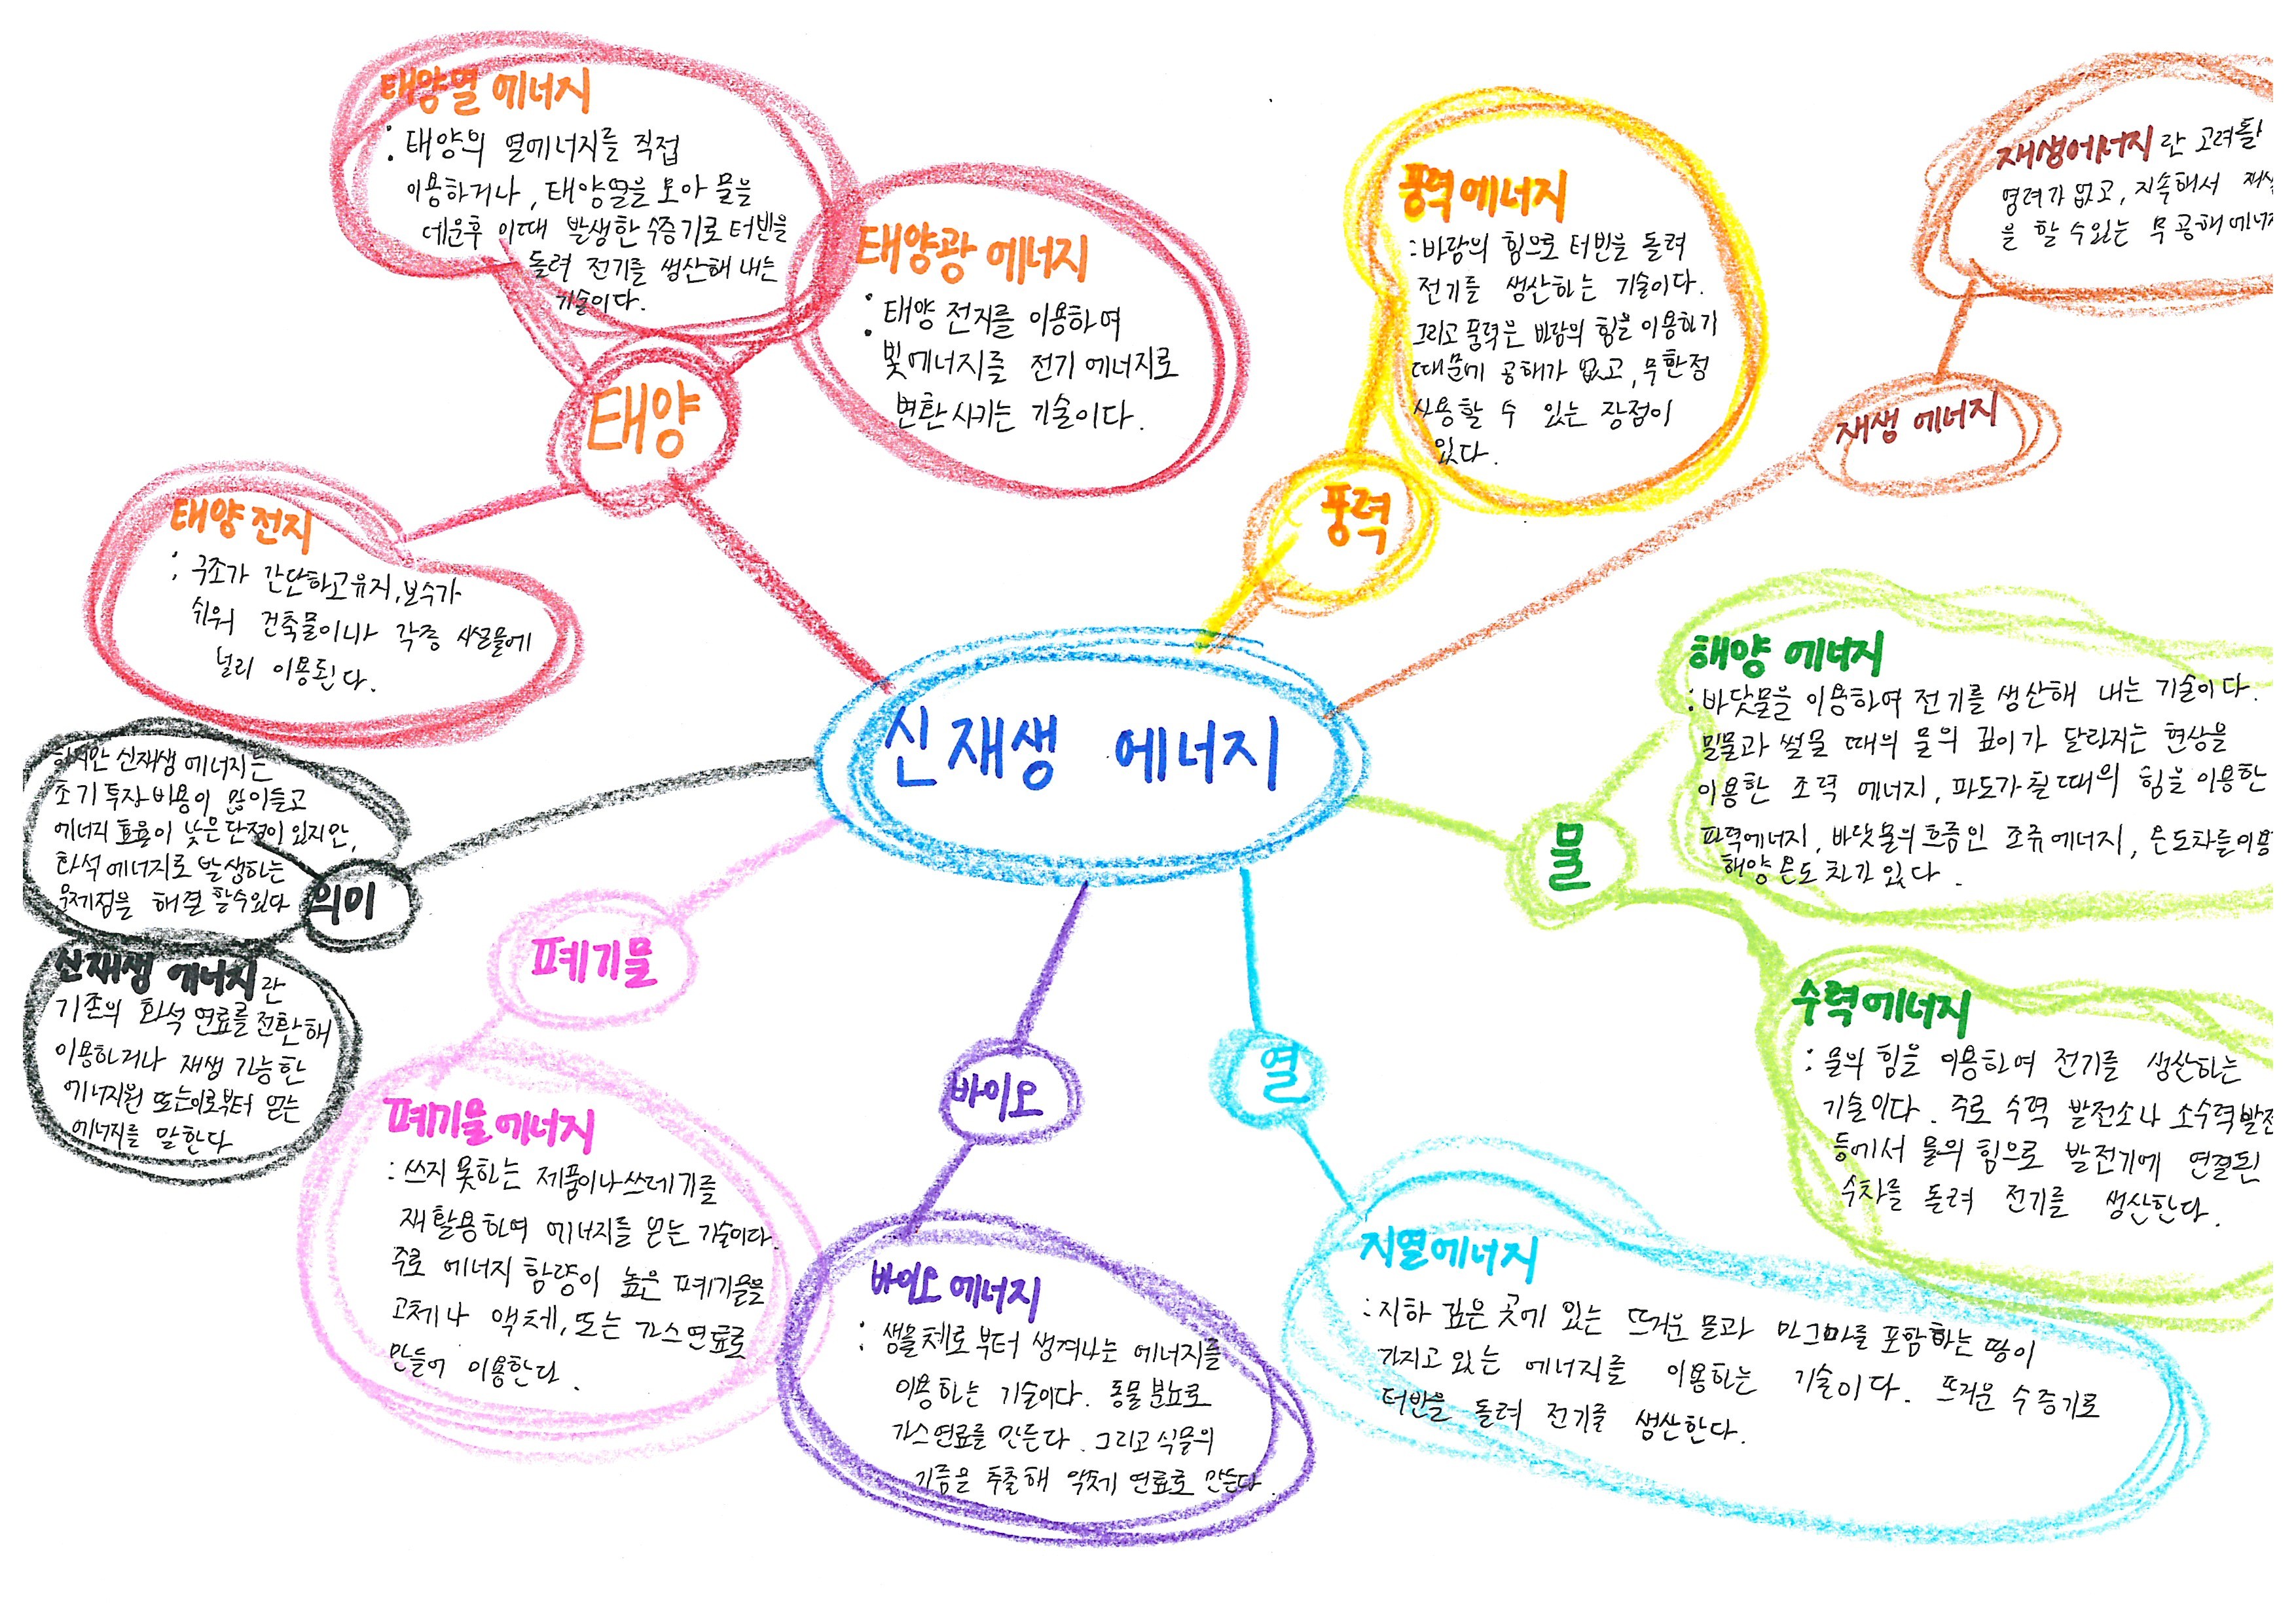 태양열 에너지
: 태양의 열에너지를 직접
이용하거나, 태양열을 모아 물을
데운후 이때 발생한 수증기로 터빈을
돌려 전기를 생산해 내는
기술이다.
태양광 에너지
: 태양 전지를 이용하여
빛에너지를 전기 에너지로
변환시키는 기술이다.
태양
태양 전지
: 구조가 간단하고 유지, 보수가
쉬워 건축물이나 각종 시설물에
널리 이용된다.
풍력 에너지
: 바람의 힘으로 터빈을 돌려
전기를 생산하는 기술이다.
그리고 풍력은 바람의 힘을 이용하기
때문에 공해가 없고, 무한정
사용할 수 있는 장점이
있다.
풍력
재생에너지란 고려돌
명려가 없고, 지속해서
을 할 수 있는 무공해 에너지
재생 에너지
신재생 에너지
해양 에너지
: 바닷물을 이용하여 전기를 생산해 내는 기술이다.
밀물과 썰물 때의 물의 깊이가 달라지는 현상을
이용한 조력 에너지, 파도가 칠 때의 힘을 이용한
파력에너지, 바닷물의 흐름인 조류 에너지, 온도차를 이용
해양 온도 차가 있다.
물
수력에너지
: 물의 힘을 이용하여 전기를 생산하는
기술이다. 주로 수력 발전소나 소수력 발전
등에서 물의 힘으로 발전기에 연결된
수차를 돌려 전기를 생산한다.
하지만 신재생 에너지는
초기 투자 비용이 많이들고
에너지 효율이 낮은 단점이 있지만,
화석 에너지로 발생하는
문제점을 해결 할수있다
의미
신재생 에너지란
기존의 화석 연료를 전환해
이용하거나 재생 가능한
에너지원 또는이로부터 얻는
에너지를 말한다
폐기물
폐기물 에너지
: 쓰지 못하는 제품이나 쓰레기를
재활용하여 에너지를 얻는 기술이다.
주로 에너지 함량이 높은 폐기물을
고체나 액체, 또는 가스연료로
만들어 이용한다.
바이오
바이오 에너지
: 생물체로부터 생겨나는 에너지를
이용하는 기술이다. 동물 분뇨로
가스연료를 만든다. 그리고 식물의
기름을 추출해 액체 연료로 만든다.
열
지열에너지
: 지하 깊은 곳에 있는 뜨거운 물과 마그마를 포함하는 땅이
가지고 있는 에너지를 이용하는 기술이다. 뜨거운 수증기로
터빈을 돌려 전기를 생산한다.